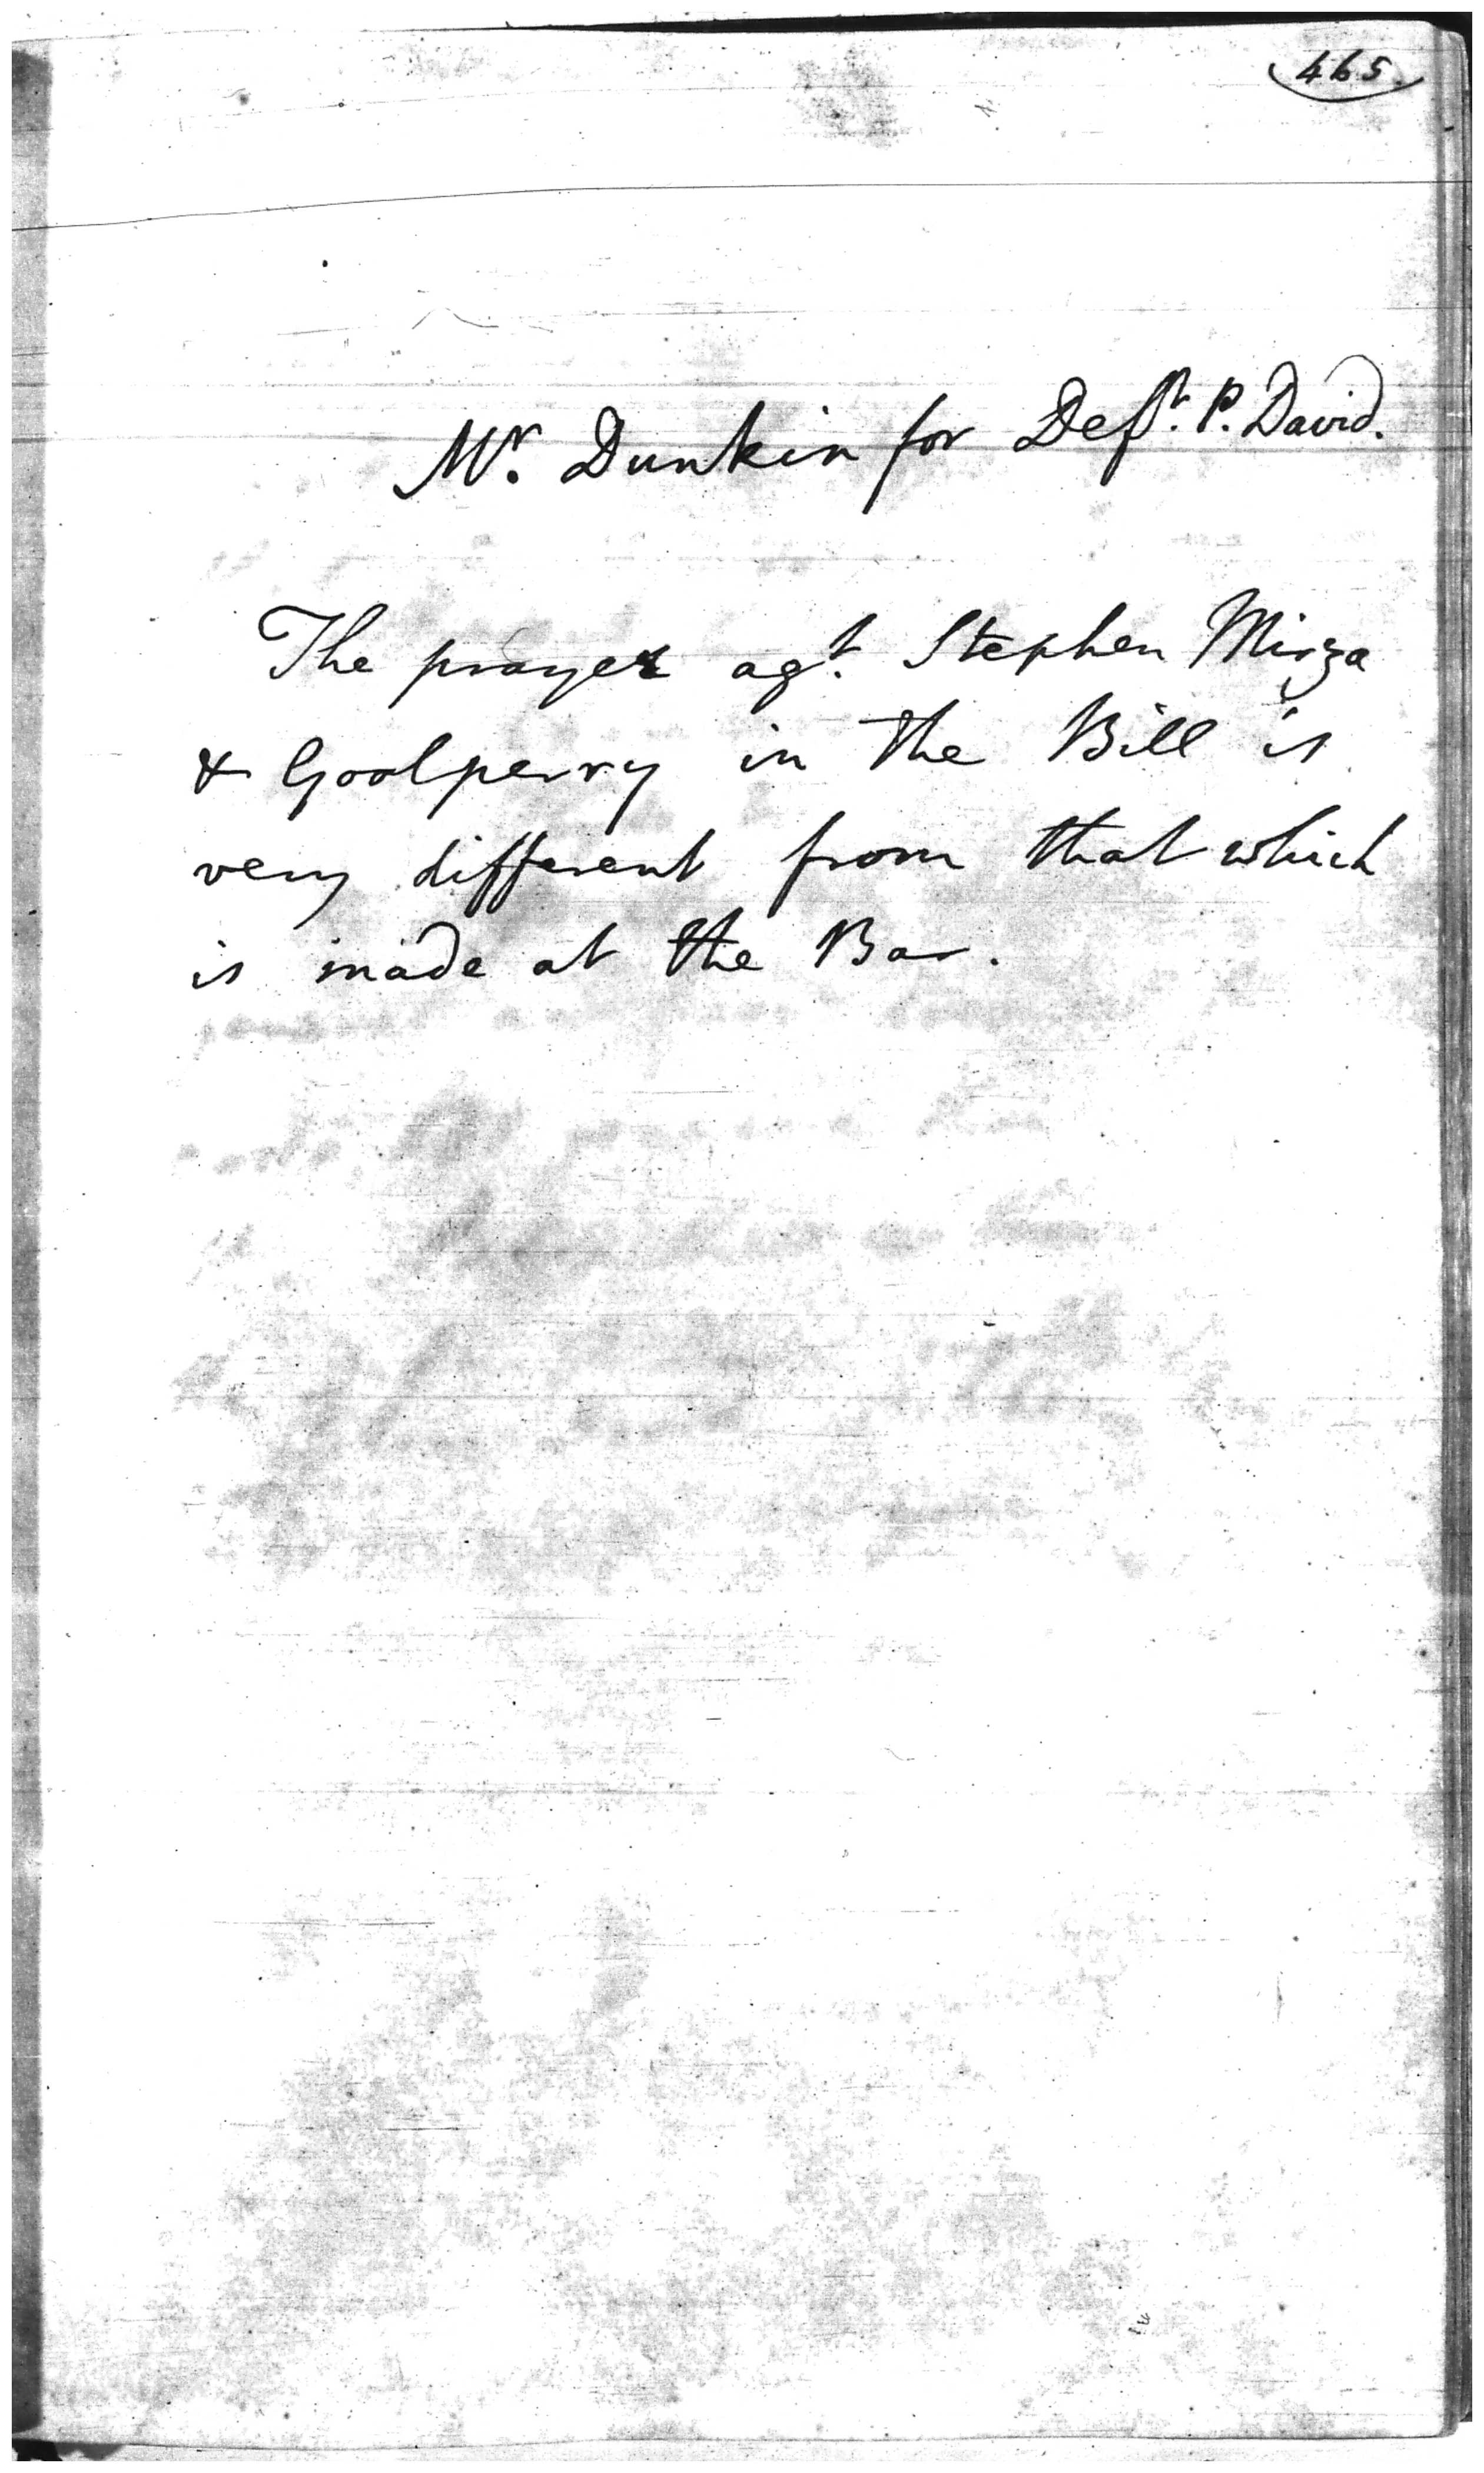 465.
Mr. Dunkin for Deft. P. David.
The prayer agt. Stephen Mirza
& Goolperry in the Bill is
very different from that which
is made at the Bar.